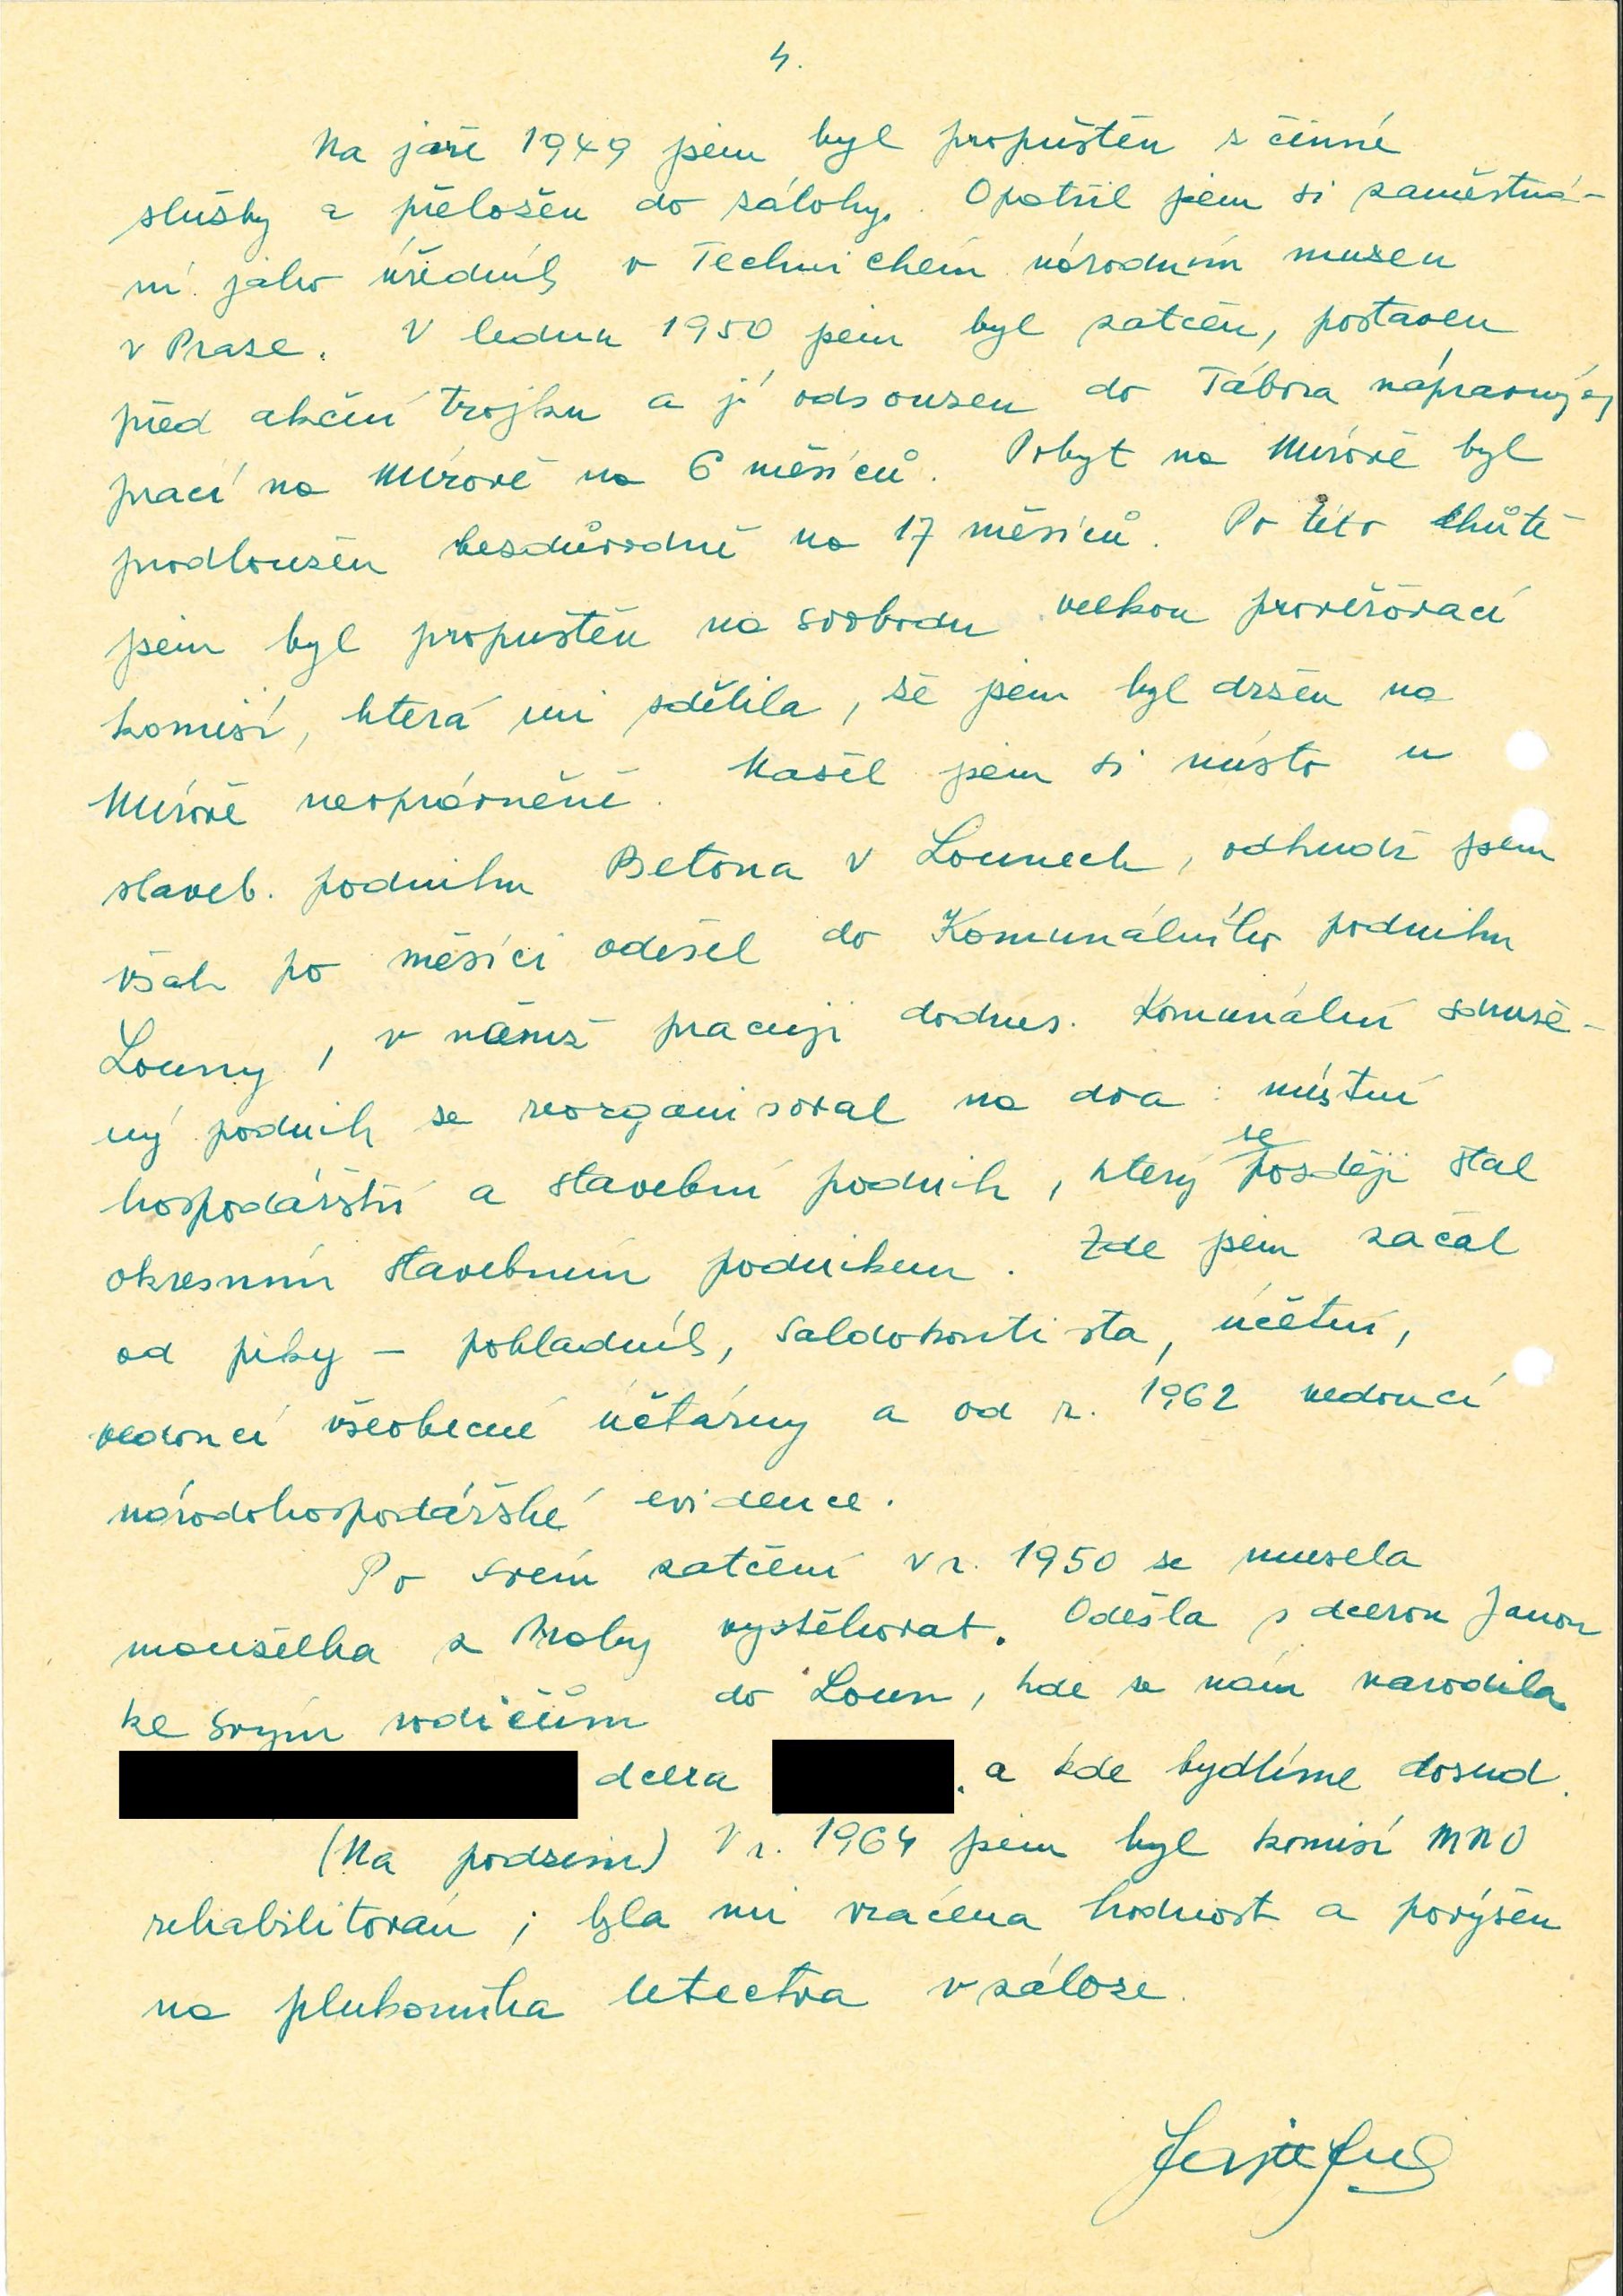 4.
Na jaře 1949 jsem byl propuštěn z činné
služby a přeložen do zálohy. Opatřil jsem si zaměstná-
ní jako úředník v Technickém národním museu
v Praze. V lednu 1950 jsem byl zatčen, postaven
před akční trojku a jí odsouzen do Tábora nápravných
prací na Mírově na 6 měsíců. Pobyt na Mírově byl
prodloužen bezdůvodně na 17 měsíců. Po této lhůtě
jsem byl propuštěn na svobodu velkou prověřovací
komisí, která mi sdělila, že jsem byl držen na
Mírově neoprávněně. Našel jsem si místo u
staveb. podniku Betona v Lounech, odkudž jsem
však po měsíci odešel do Komunálního podniku
Louny, v němž pracuji dodnes. Komunální sdruže-
ný podnik se reorganisoval na dva: místní
hospodářství a stavební podnik, který se později stal
okresním stavebním podnikem. Zde jsem začal
od píky – pokladník, saldokontista, účetní,
vedoucí všeobecné účtárny a od r. 1962 vedoucí
národohospodářské evidence.
Po svém zatčení v r. 1950 se musela
manželka z Prahy vystěhovat. Odešla s dcerou Janou
ke svým rodičům do Loun, kde se nám narodila
dcera a kde bydlíme dosud.
(Na podzim) V r. 1964 jsem byl komisí MNO
rehabilitován; byla mi vrácena hodnost a povýšen
na plukovníka letectva v záloze.